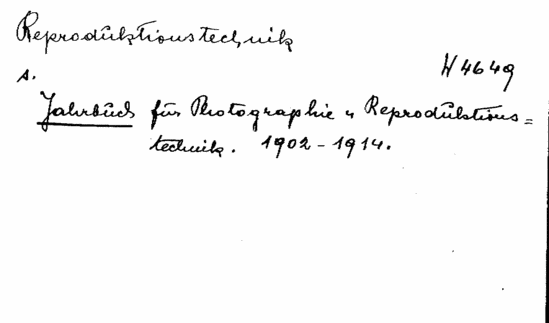 Reproduktionstechnik
H 4649
s.
Jahrbuch für Photographie u Reproduktions=
technik. 1902-1914.